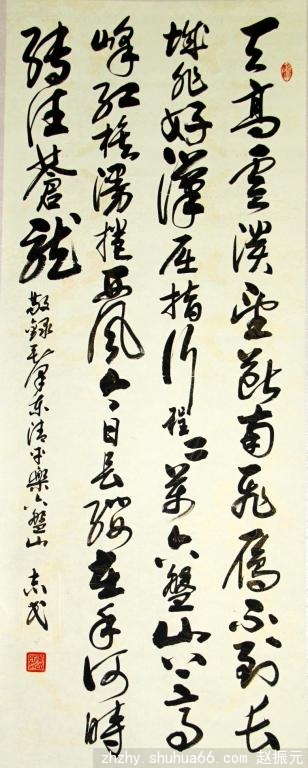 天高雲淡望斷南飛雁不到長
城非好漢屈指行程二萬六盤山上高
峰紅旗漫捲西風今日長纓在手何時
縛住蒼龍
敬錄毛澤東清平樂六盤山 志民
zhzhy.shuhua66.com 赵振元